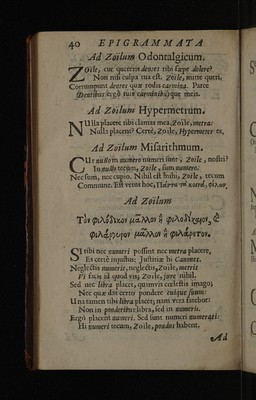 40 EPIGRAMMATA
Ad Zoilum Odontalgicum.
Zoile, cur quereris dentes tibi sæpe dolere?
Non nisi culpa tua est. Zoile, mitte queri.
Corrumpunt dentes quæ rodis carmina. Parce
Dentibus ergò tuis carminibusque meis.
Ad Zoilum Hypermetrum.
NUlla placere tibi clamas mea, Zoile, metra:
Nulla placent? Certè, Zoile, Hypermeter es.
Ad Zoilum Misarithmum.
CUr nullo in numero numeri sunt, Zoile, nostri?
In nullo tecum, Zoile, sum numero.
Nec sum, nec cupio. Nihil est mihi, Zoile, tecum
Commune. Est verus hoc, Πάντα τὰ κοινά, φίλων.
Ad Zoilum
Τὸν φιλόδικον μᾶλλον ἢ φιλοδίκαιον, &
φιλάργυρον μᾶλλον ἢ φιλάρετον.
SI tibi nec numeri possint nec metra placere,
Es certè injustus: Justitiæ hi
Neglectis numeris, neglectis, Zoile, metris
Fieri id quod vis, Zoile, jure nihil.
Sed nec libra placet, quamvis cœlestis imago;
Nec quæ dat certo pondere cuique suum:
Una tamen tibi libra placet; nam vera fatebor:
Non in ponderibus libra, sed in numeris.
Ergò placent numeri. Sed sunt numeri numerati:
Hi numeri tecum, Zoile, pondus habent.
Ad